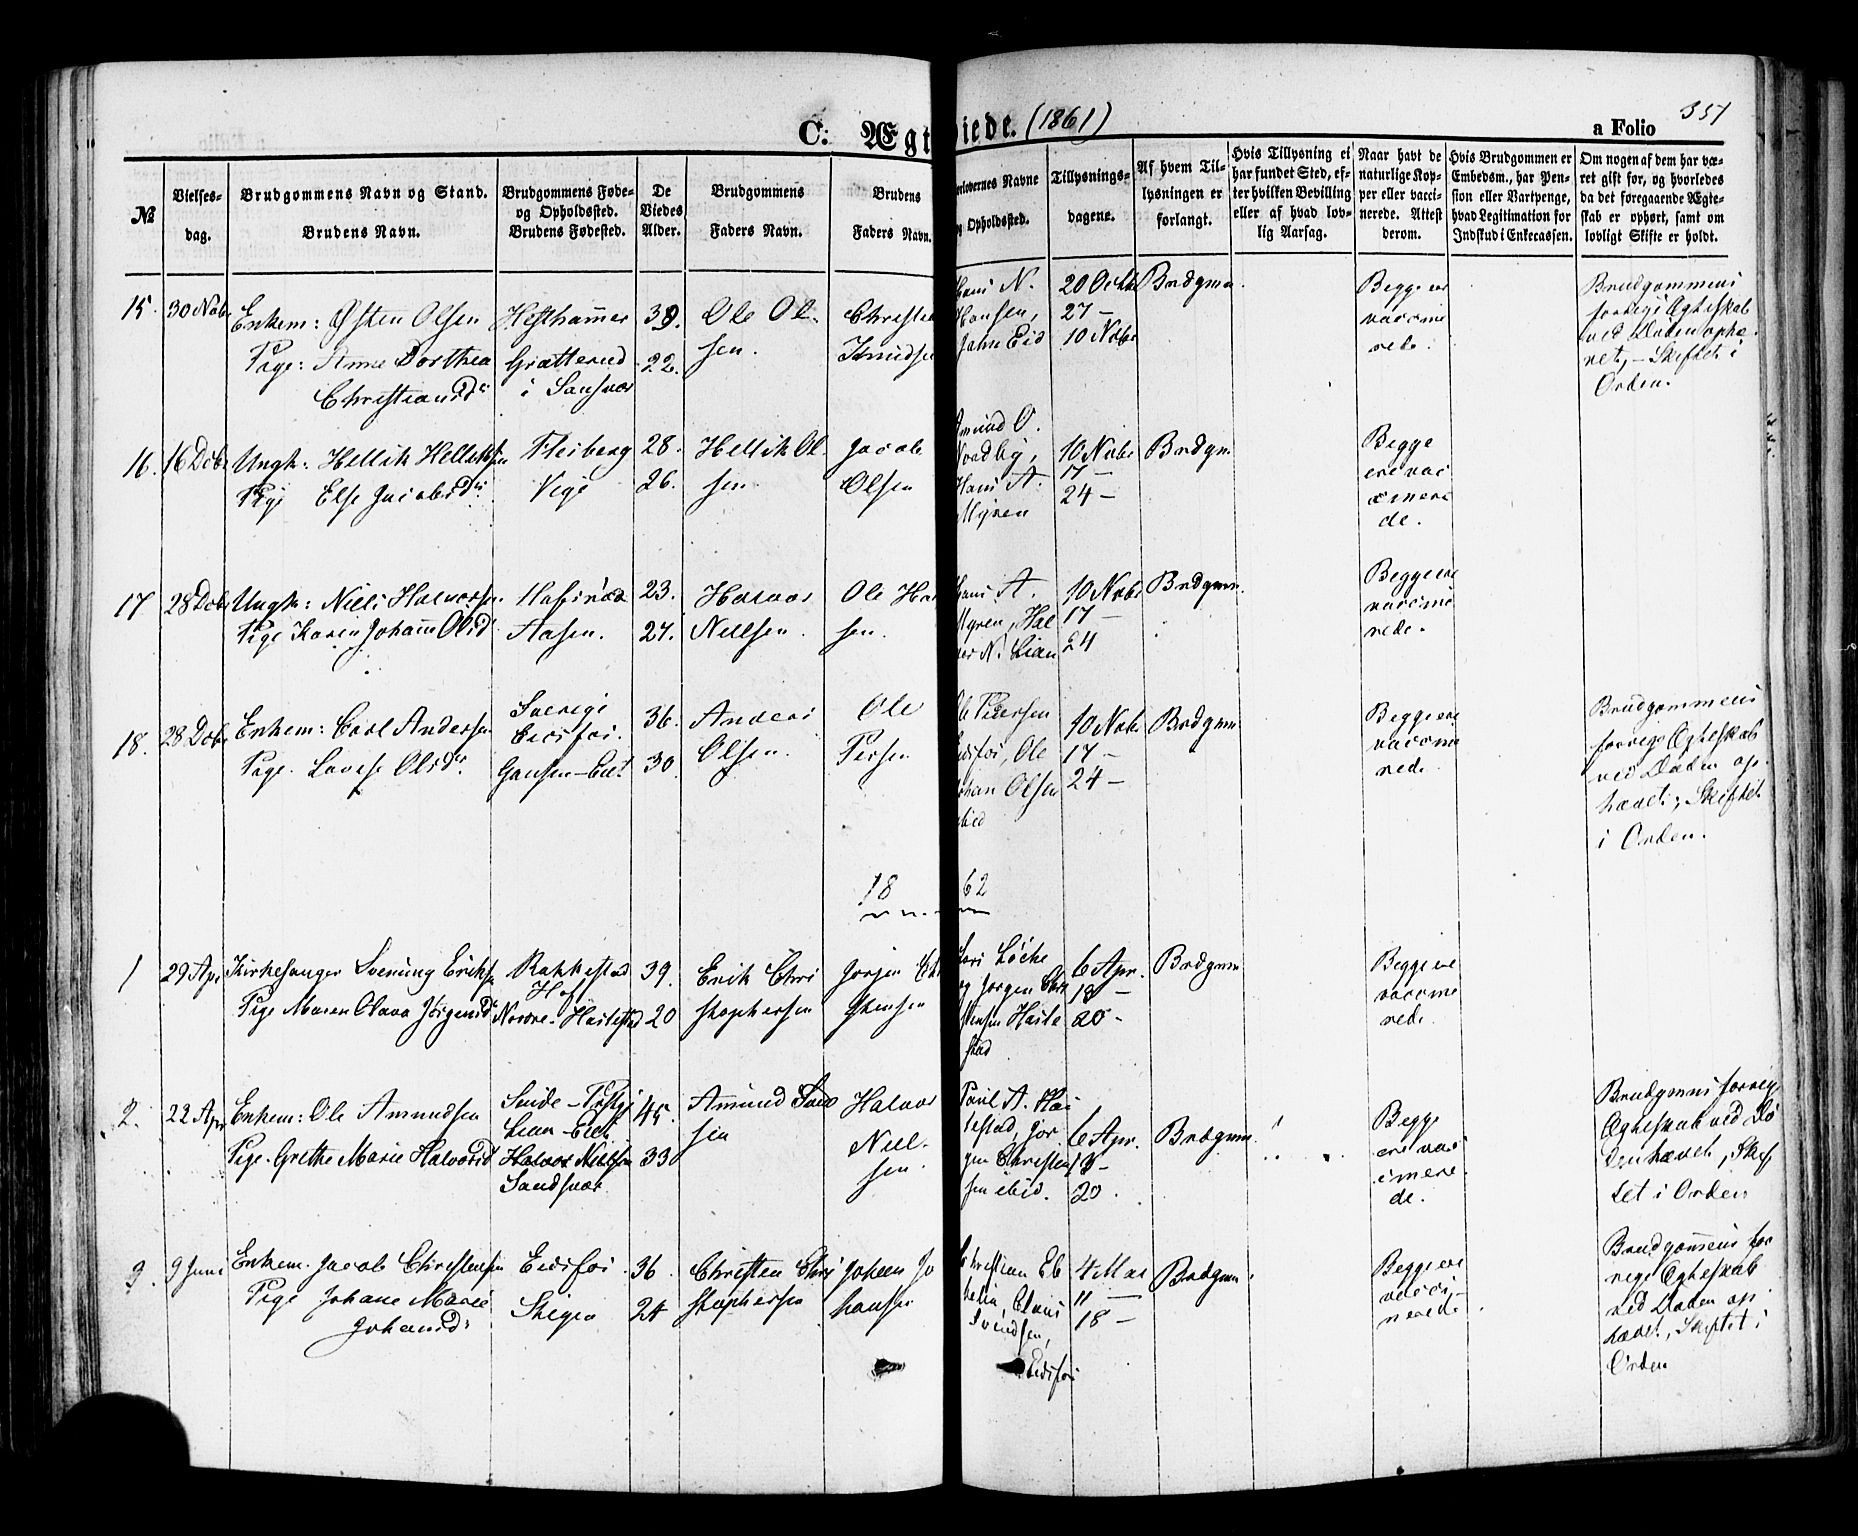 C: Ægt viede. (1861)
a Folio 351
No
Vielses-
dag.
Brudgommens Navn og Stand.
Brudens Navn.
Brudgommens Føde-
og Opholdssted.
Brudens Fødested.
De
Viedes
Alder.
Brudgommens
Faders Navn.
Brudens
Faders Navn.
erlovernes Navne
g Opholdssted.
Tillysnings-
dagene.
Af hvem Til-
lysningen er
forlangt.
Hvis Tillysning ei
har fundet Sted, ef-
ter hvilken Bevilling
eller af hvad lov-
lig Aarsag.
Naar havt de
naturlige Kop-
per eller vacci-
nerede. Attest
derom.
Hvis Brudgommen er
Embedsm., har Pen-
sion eller Vartpenge,
hvad Legitimation for
Indskud i Enkecassen.
Om nogen af dem har væ-
ret gift for, og hvorledes
da det foregaaende Ægte-
skab er ophørt, samt om
lovligt Skifte er holdt.
15. 30 Nobr
Enkem: Østen Olsen
Pige: Anne Dorthea
Christiansdr
Hesthammer
Grætterud
i Sansvær
38.
22.
Ole Ol-
sen.
Christen
Knudsen
Hans N.
Hansen,
John Eid
20 Octbr
27 —
10 Nobr
Brdgmn
Begge ere
vaccine
rede.
Brudgommens
forrige Ægteskab
ved Døden ophæ-
vet, - Skiftet i
Orden.
16. 16 Dcbr
Ungk: Hellik Helliksen
Pige Else Jacobsdr
Flesberg
Vege
28.
26.
Hellik Ol
sen
Jacob
Olsen
Amund O.
Nordby,
Hans A.
Myren
10 Nobr
17 —
24 —
Brdgm
Begge
ere vac
cinere
de.
17 28 Dcbr
Ungk: Niels Halvorsen
Pige Karen Johanne Olsd
Hafsnæs
Aasen.
23.
27.
Halvor
Nielsen.
Ole Hal
sen.
Hans A.
Myren, Hal
vor N. Lian
10 Nobr
17 —
24
Brdgmn.
Begge ere
vaccine
rede.
18. 28 Dcbr
Enkem: Carl Andersen
Pige. Lovise Olsdr
Sverige
Eidsfos.
Gansen-Eie
36.
30.
Anders
Olsen.
Ole
Persen
Ole Petersen
Eidsfos, Ole
Johan Olsen
ibid
10 Nobr
17 —
24 —
Brdgmn
Begge ere
vaccine
rede
Brudgommens
forrige Ægteskab
ved Døden op-
hævet; Skiftet
i Orden.
18 62
1 29 Apr
Kirkesanger Svenung Eriksen
Pige Maren Olava Jørgensdr
Rakkestad
Hof
Nordre-Haslestad
39.
20
Erik Chri
stophersen
Jørgen Chri
stensen
Lars Løcke
og Jørgen Chri
stensen Hasle
stad
6 Apr.
13 —
20 -
Brdgmn
Begge ere
vaccine
rede.
2. 22 Apr
Enkem: Ole Amundsen
Pige. Grethe Marie Halvorsd
Lian-Eiet
Halvor Nielsen
Sandsvær
45.
33
Amund
sen
Halvor
Niel-
sen.
Paul A. Has
lestad, Jør
gen Christen
sen ibid.
6 Apr.
13 -
20.
Brdgmn
Begge
ere vac
cinere
de.
Brudgmns forrige
Ægteskab ved Dø
den hævet, Skif
tet i Orden
3. 9 Juni
Enkem. Jacob Christensen
Pige Johane Marie
Johansdr
Eidsfos
Skigen
36.
24
Christen Chri
stophersen
Johan Jo
hansen
Christian Eb
Claus
Svendsen,
Eidsfos
4 Mai
11 —
18 —
Brdgmn
Begge ere
vacci-
nerede.
Brudgommens for
rige Ægteskab
ved Døden op-
hævet, Skiftet i
Orden